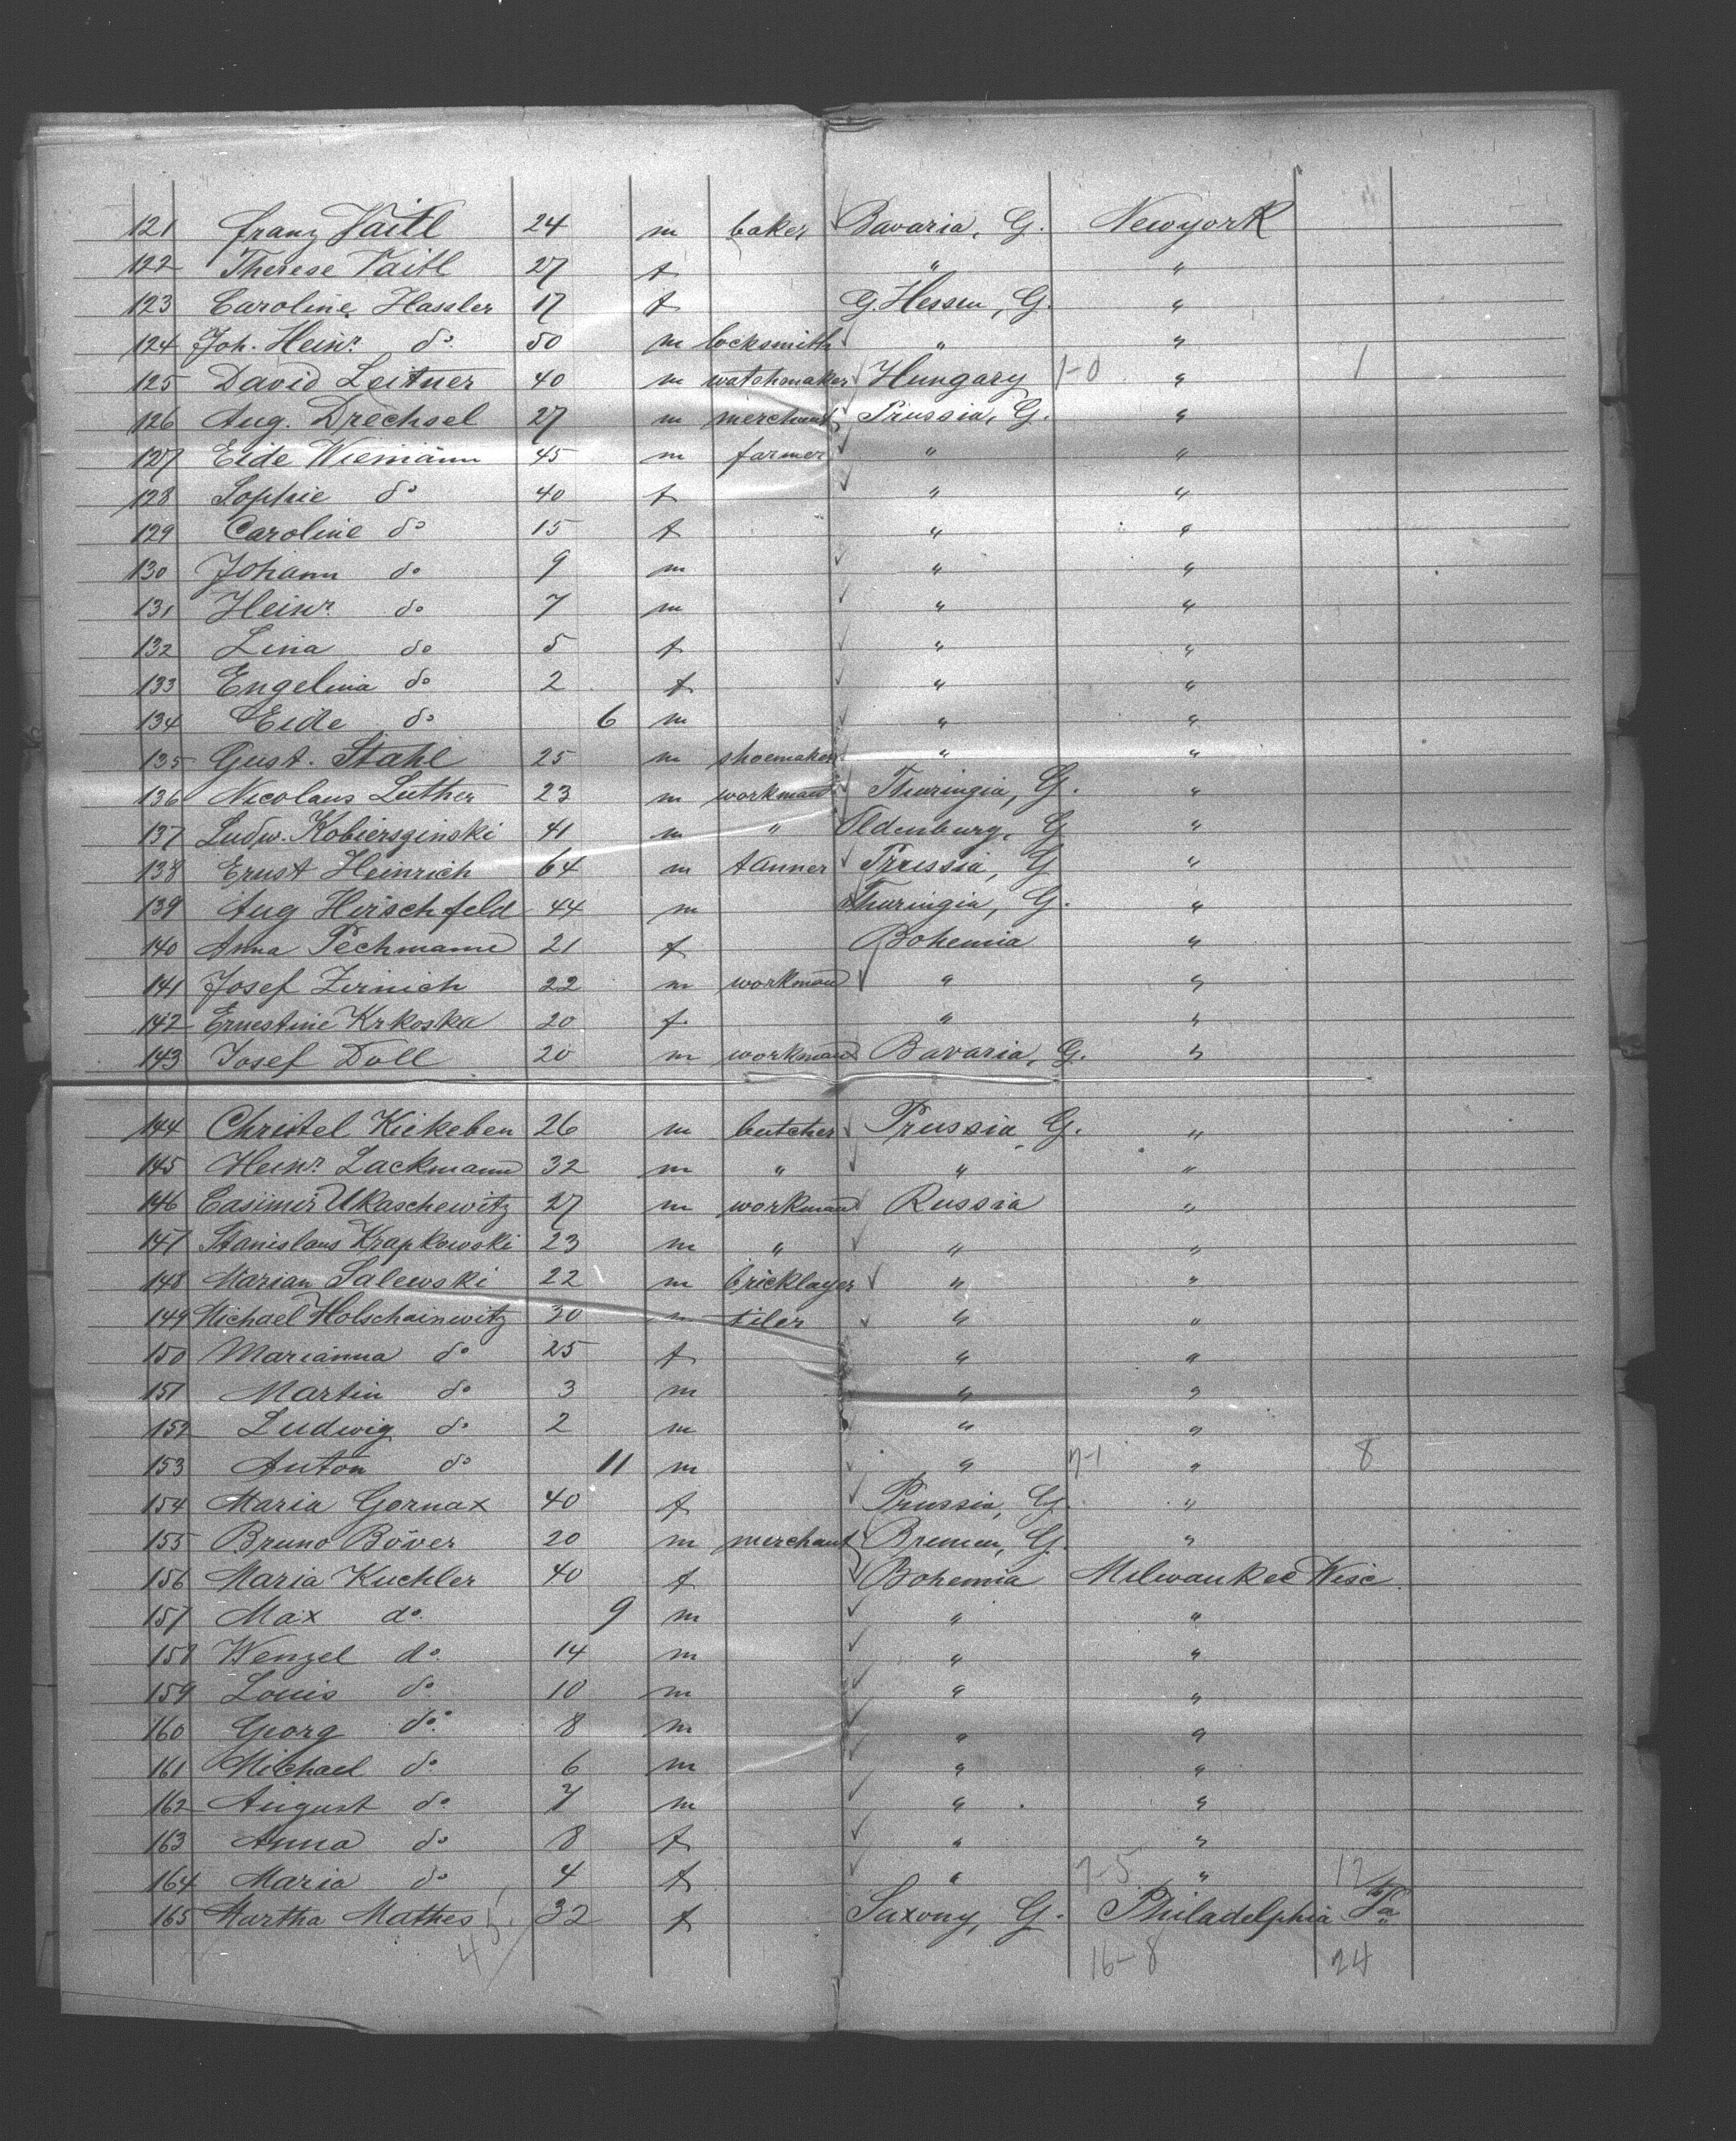 121 Franz Vaitl 24 m baker Bavaria, G. Newyork
122 Therese Vaitl 27 f " "
123 Caroline Hassler 17 f G. Hessen, G. "
124 Joh. Heinr. do 50 m locksmith " "
125 David Leitner 40 m watchmaker Hungary 1-0 " 1
126 Aug. Drechsel 27 m merchant Prussia, G. "
127 Eide Wiemann 45 m farmer " "
128 Sophie do 40 f " "
129 Caroline do 15 f " "
130 Johann do 9 m " "
131 Heinr. do 7 m " "
132 Lina do 5 f " "
133 Engelina do 2 f " "
134 Eide do 6 m " "
135 Gust. Stahl 25 m shoemaker " "
136 Nicolaus Luther 23 m workman Thuringia, G. "
137 Ludw. Kobiersginski 41 m " Oldenburg, G "
138 Ernst Heinrich 64 m tanner Prussia, G "
139 Aug Hirschfeld 44 m Thuringia, G. "
140 Anna Pechmann 21 f Bohemia "
141 Josef Zirnich 22 m workman " "
142 Ernestine Krkoska 20 f " "
143 Josef Doll 20 m workman Bavaria, G. "
144 Christel Kickeben 26 m butcher Prussia, G. "
145 Heinr. Lackmann 32 m " " "
146 Casimir Ukaschewitz 27 m workman Russia "
147 Stanislaus Krapkowski 23 m " " "
148 Marian Salewski 22 m bricklayer " "
149 Michael Holschainwitz 30 m tiler " "
150 Marianna do 25 f " "
151 Martin do 3 m " "
152 Ludwig do 2 m " "
153 Anton do 11 m " 7-1 " 8
154 Maria Gornax 40 f Prussia, G. "
155 Bruno Böver 20 m merchant Bremen, G. "
156 Maria Kuchler 40 f Bohemia Milwaukee Wisc.
157 Max do. 9 m " "
158 Wenzel do. 14 m " "
159 Louis do. 10 m " "
160 Georg do. 8 m " "
161 Michael do. 6 m " "
162 August do. 7 m " "
163 Anna do 8 f " "
164 Maria do 4 f " 7-5 " 12
165 Martha Mathes 32 f Saxony, G. Philadelphia Pa
45 16-8 24